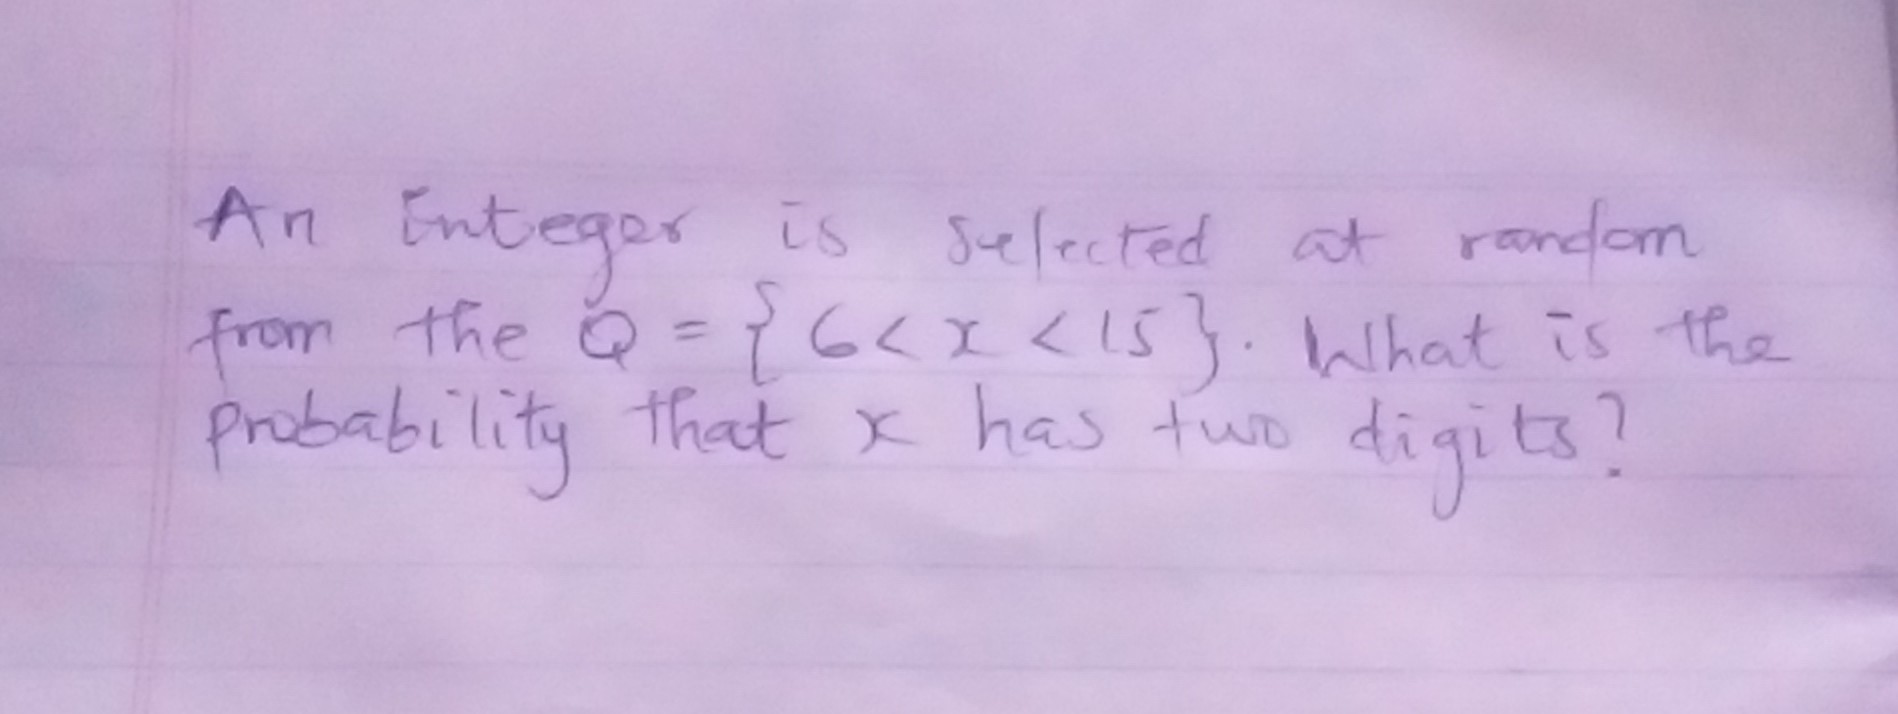 An Integer is selected at random
from the Q = {6 < x < 15}. What is the
probability that x has two digits?